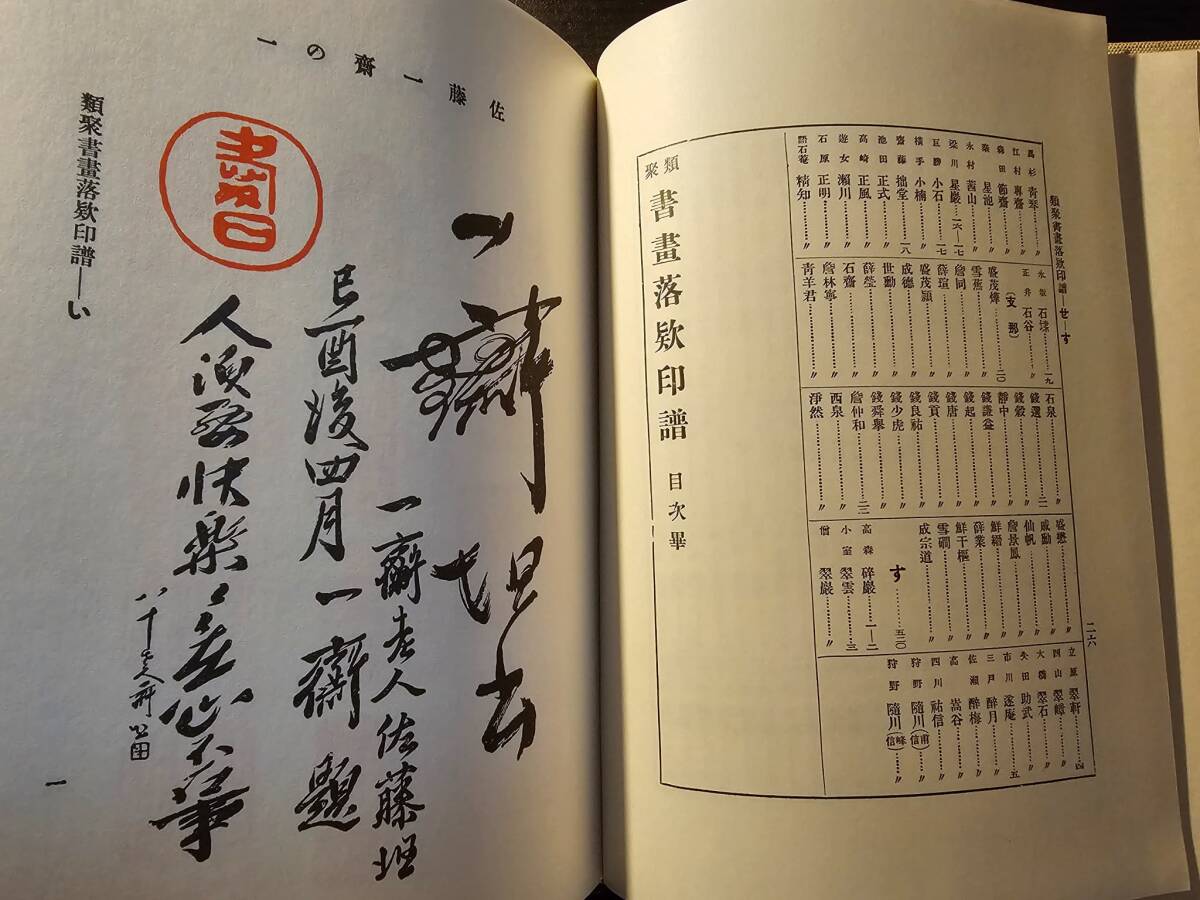 類聚書畫落欵印譜―せ―す
江村 專齋………〃
森田 節齋………〃
梁 星池………〃
永村 茜山………〃
梁川 星巖…一六―一七
瓦勝 小石………一七
横手 小楠………〃
齋藤 拙堂………一八
池田 正式………〃
高崎 正風………〃
遊女 瀬川………〃
石原 正明………〃
語石菴 精知………〃
永坂 石埭………一九
正井 石谷………〃
〔支那〕
盛茂燁………二〇
雪蕉………〃
詹同………〃
薛瑄………〃
盛茂穎………〃
成德………〃
世勳………〃
薛瑩………〃
石齋………〃
詹林寧………〃
青羊君………〃
石泉………〃
錢選………二一
錢穀………〃
靜中………〃
錢謙益………〃
錢起………〃
錢唐………〃
錢貢………〃
錢良祐………〃
錢少虎………〃
錢舜擧………〃
詹仲和………二二
西泉………〃
淨然………〃
盛懋………〃
戚勳………〃
仙帆………〃
詹景鳳………〃
薛業………〃
鮮于樞………〃
雪磵………〃
成宗道………〃
す………五二〇
高森 碎巖………一―二
小室 翠雲………三
僧 翠巖………〃
立原 翠軒………四
四山 翠嶂………〃
大橋 翠石………〃
矢田 助武………〃
市川 遂庵………五
三戸 醉月………〃
佐瀬 醉梅………〃
高 嵩谷………〃
四川 祐信………〃
狩野 隨川(甫信)………〃
狩野 隨川………〃
二六
類聚 書畫落欵印譜 目次畢
佐藤一齋の一
一齋坦書
一齋老人佐藤坦
己酉後四月 一齋題
類聚書畫落欵印譜―い
一